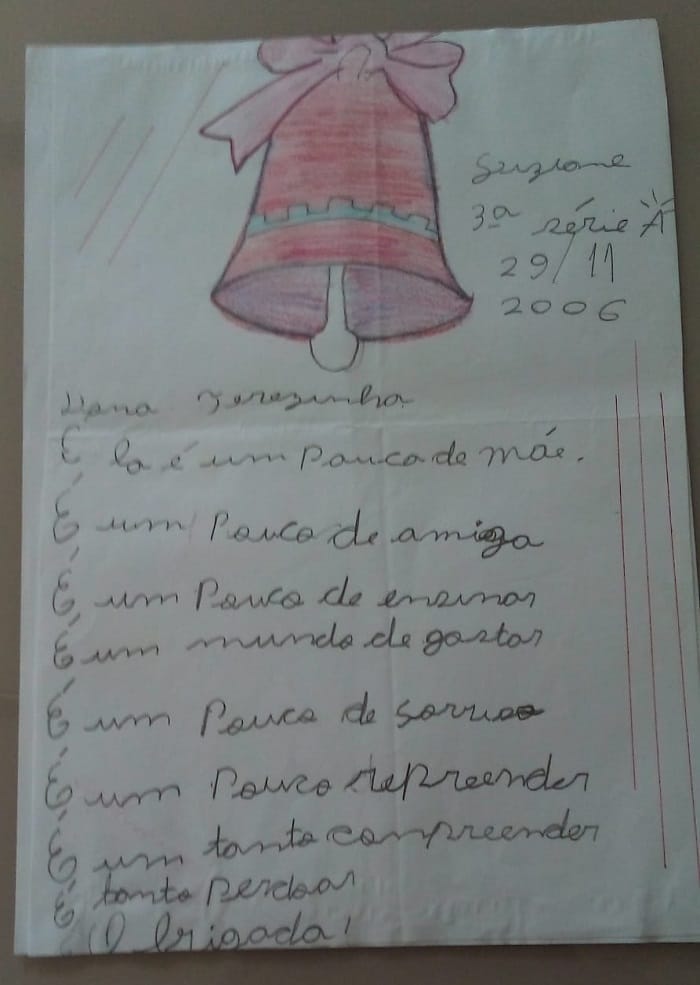 Suziane
3ª série A
29/11
2006
Dona Terezinha
Ela é um pouco de mãe.
É um pouco de amiga
É um pouco de ensinar
É um mundo de gostar
É um pouco de sorriso
É um pouco repreender
É um tanto compreender
É tanto perdoar
Obrigada!